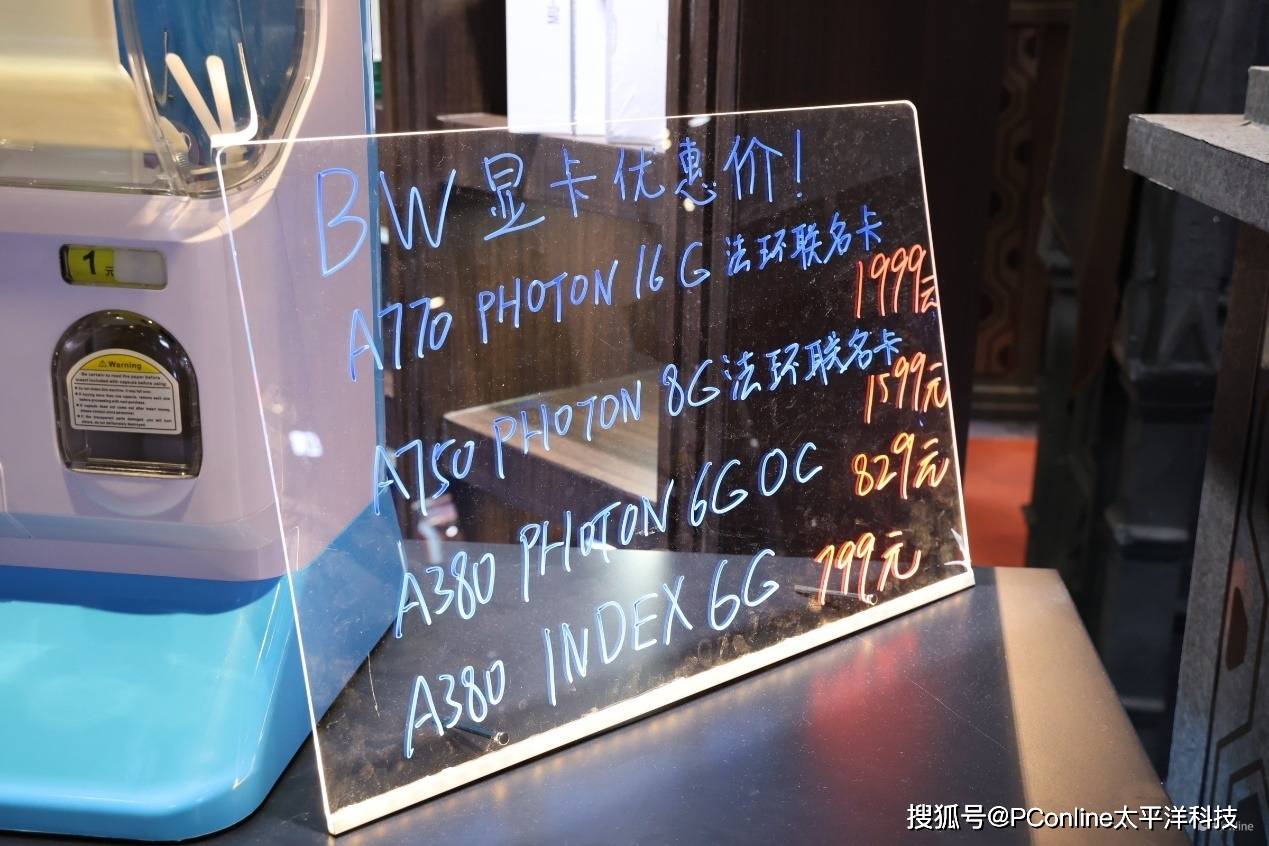 BW显卡优惠价!
A770 PHOTON 16G 法环联名卡
1999元
A750 PHOTON 8G法环联名卡
1599元
A380 PHOTON 6G OC 829元
A380 INDEX 6G 799元
1元
Warning
搜狐号@PConline太平洋科技